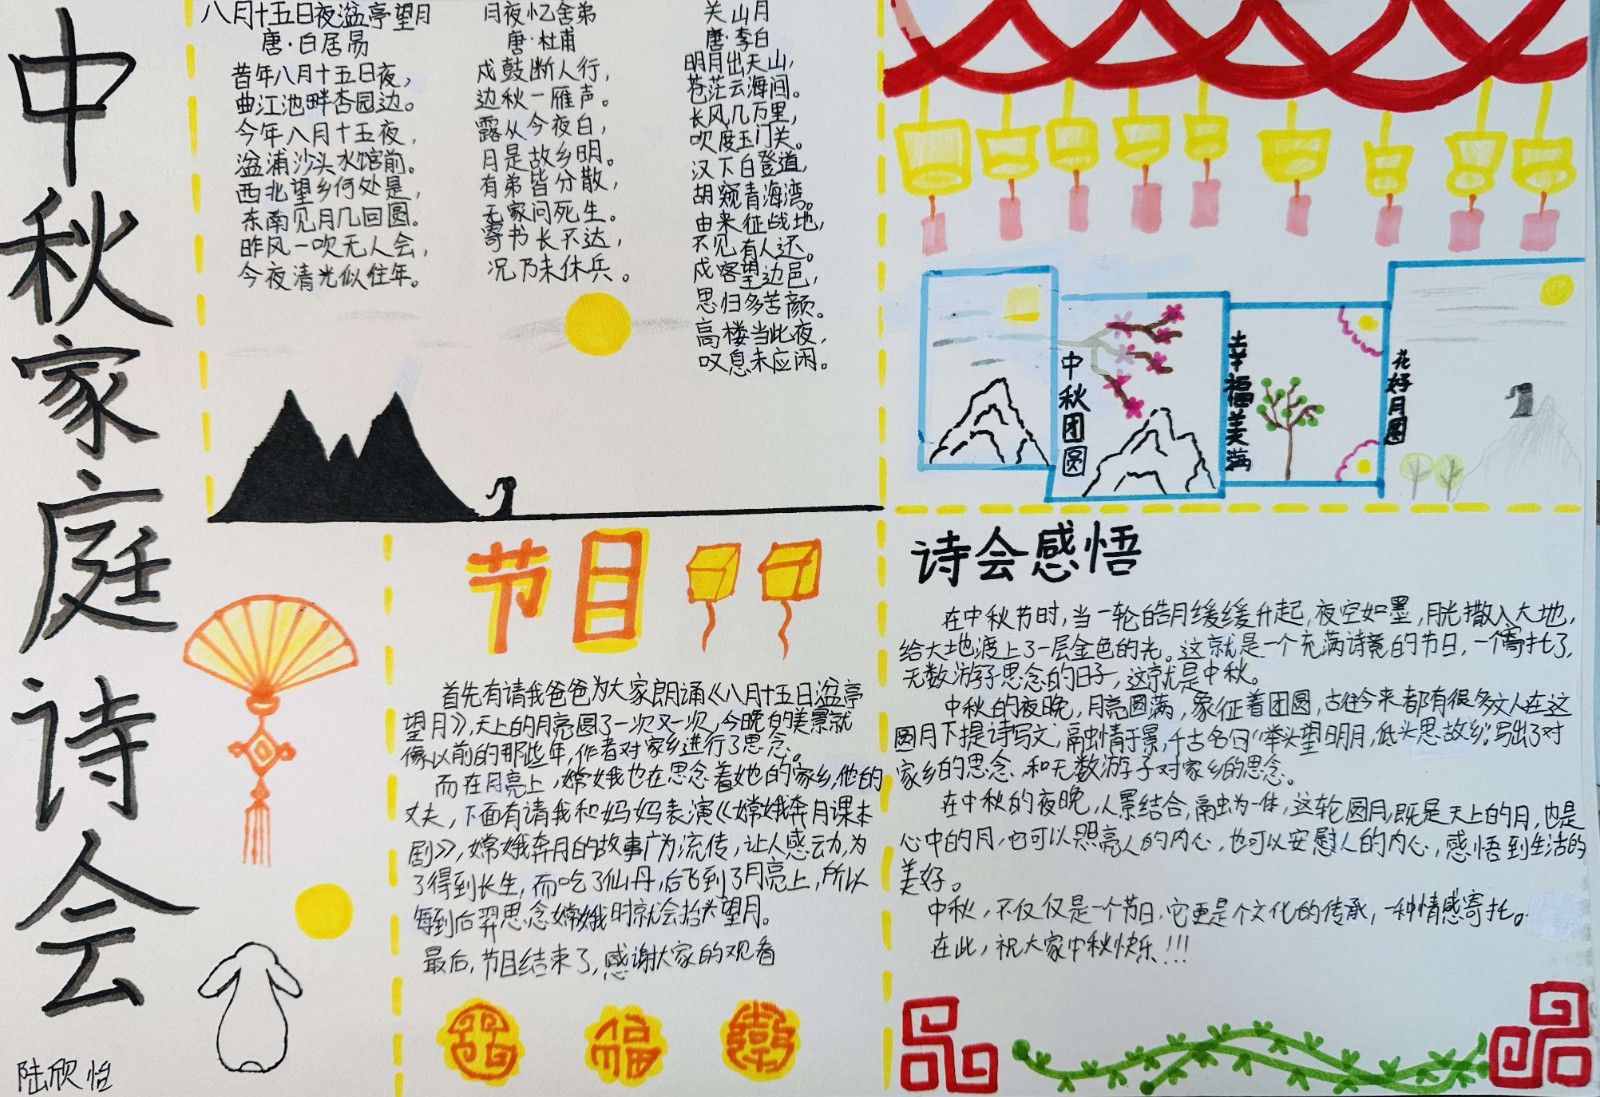 中秋家庭诗会
陆欣怡
八月十五日夜湓亭望月
唐·白居易
昔年八月十五日夜，
曲江池畔杏园边。
今年八月十五夜，
湓浦沙头水馆前。
西北望乡何处是，
东南见月几回圆。
昨风一吹无人会，
今夜清光似往年。
月夜忆舍弟
唐·杜甫
戍鼓断人行，
边秋一雁声。
露从今夜白，
月是故乡明。
有弟皆分散，
无家问死生。
寄书长不达，
况乃未休兵。
关山月
唐·李白
明月出天山，
苍茫云海间。
长风几万里，
吹度玉门关。
汉下白登道，
胡窥青海湾。
由来征战地，
不见有人还。
戍客望边邑，
思归多苦颜。
高楼当此夜，
叹息未应闲。
中秋团圆
幸福美满
花好月圆
节目
首先有请我爸爸为大家朗诵《八月十五日湓亭
望月》，天上的月亮圆了一次又一次，今晚的美景就
像以前的那些年，作者对家乡进行了思念。
而在月亮上，嫦娥也在思念着她的家乡，他的
丈夫，下面有请我和妈妈表演《嫦娥奔月课本
剧》，嫦娥奔月的故事广为流传，让人感动，为
了得到长生，而吃了仙丹，后飞到了月亮上，所以
每到后羿思念嫦娥时就会抬头望月。
最后，节目结束了，感谢大家的观看
福
诗会感悟
在中秋节时，当一轮皓月缓缓升起，夜空如墨，月光撒入大地，
给大地渡上了一层金色的光。这就是一个充满诗意的节日，一个寄托了，
无数游子思念的日子，这就是中秋。
中秋的夜晚，月亮圆满，象征着团圆，古往今来都有很多文人在这
圆月下提诗写文，融情于景，千古名句“举头望明月，低头思故乡。”写出了对
家乡的思念，和无数游子对家乡的思念。
在中秋的夜晚，人景结合，融为一体，这轮圆月，既是天上的月，也是
心中的月，它可以照亮人的内心，也可以安慰人的内心，感悟到生活的
美好。
中秋，不仅仅是一个节日，它更是个文化的传承，一种情感寄托。
在此，祝大家中秋快乐！！！